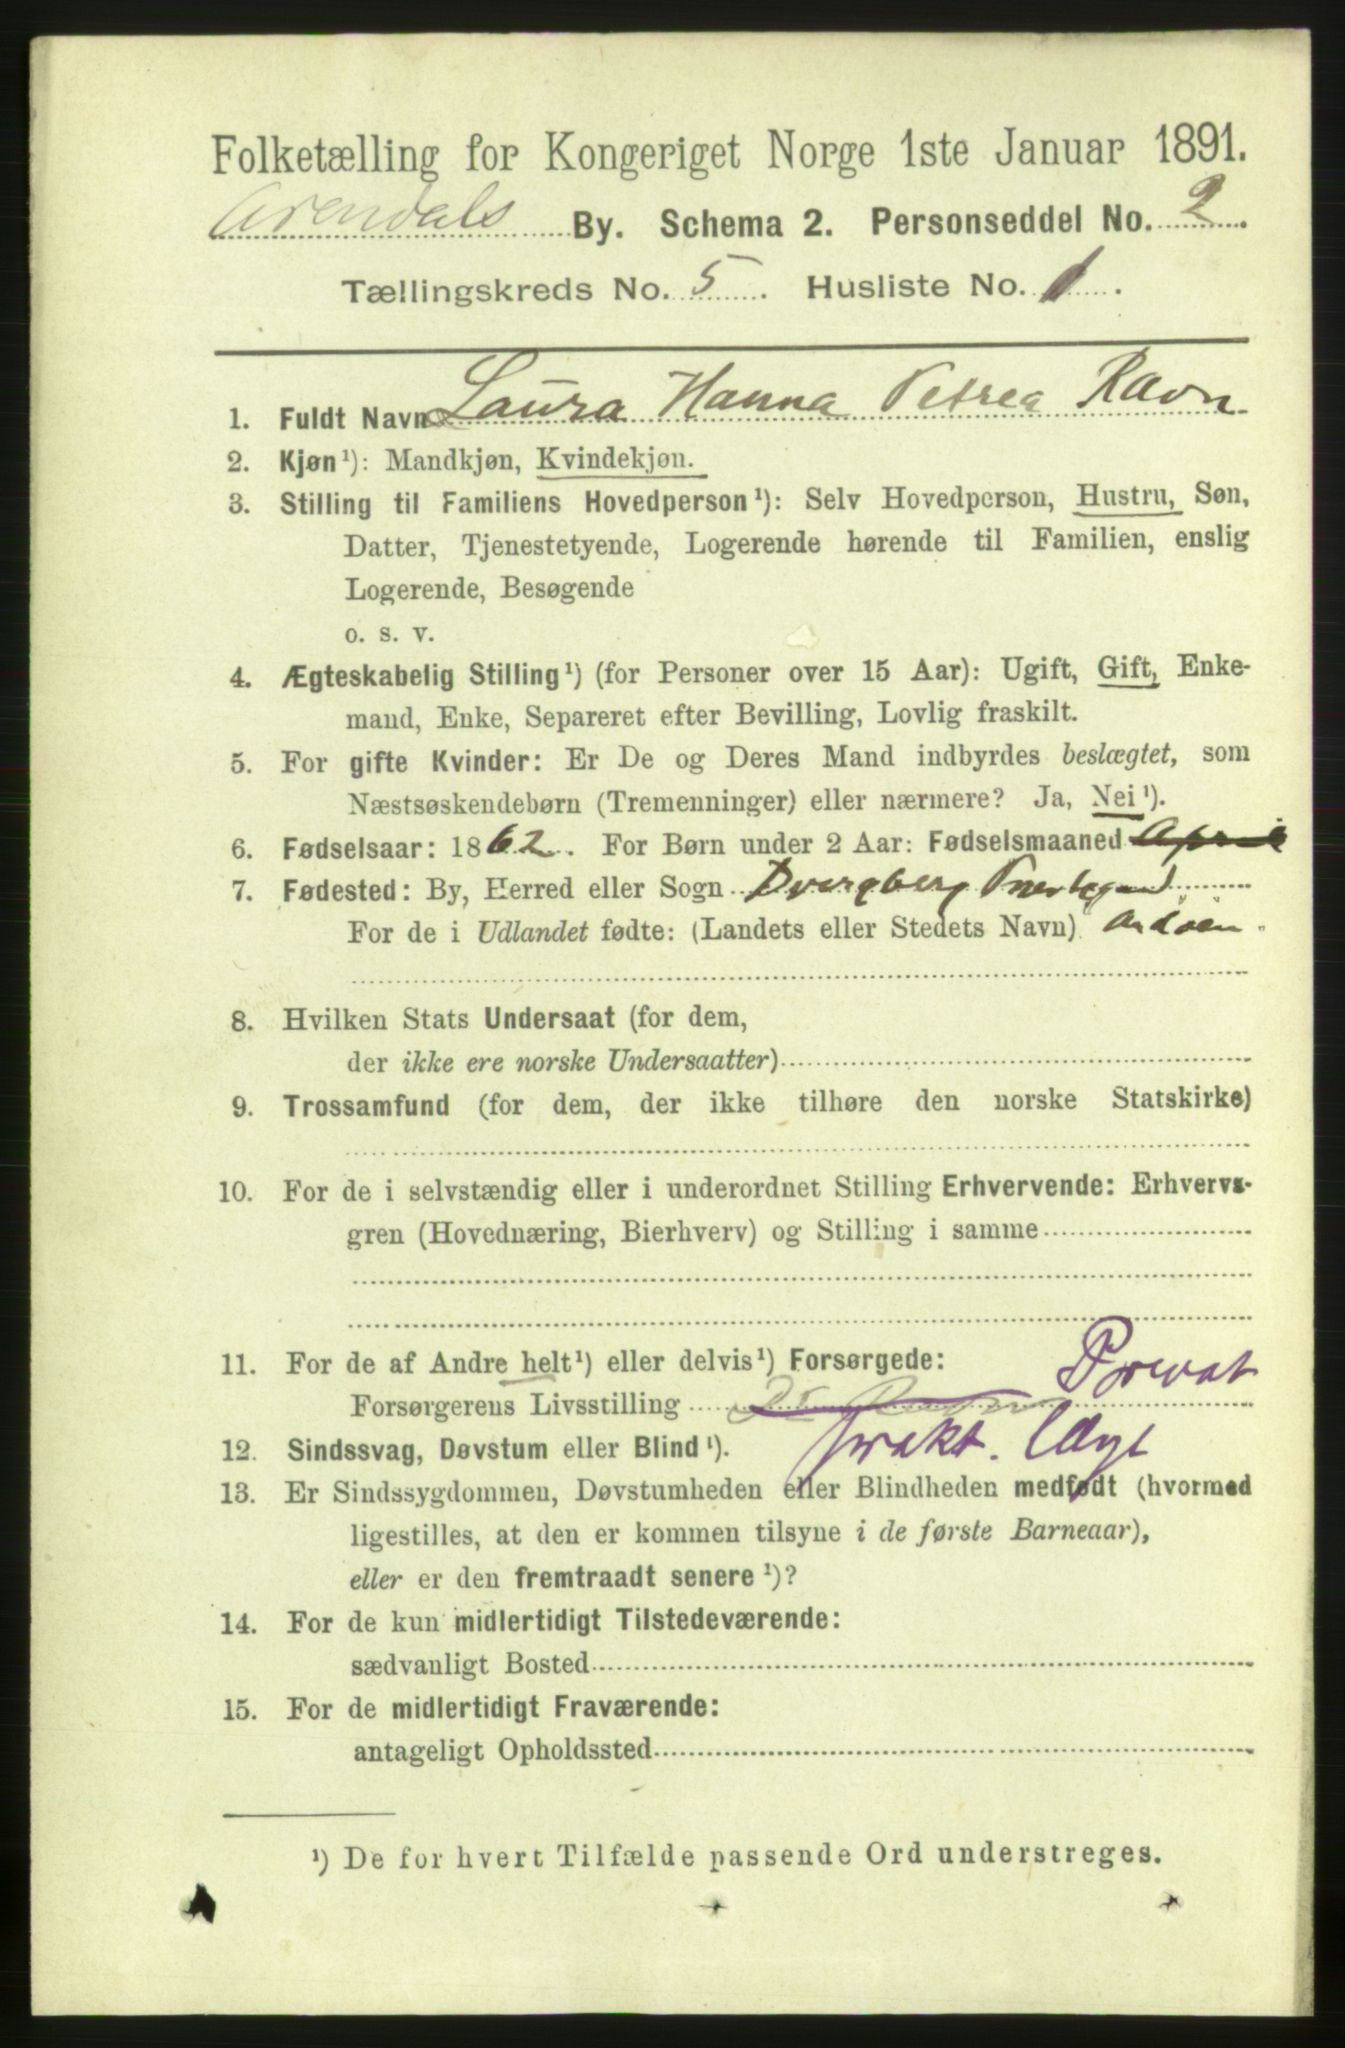 Folketælling for Kongeriget Norge 1ste Januar 1891.
Arendals By. Schema 2. Personseddel No. 2.
Tællingskreds No. 5. Husliste No. 1.
1. Fuldt Navn Laura Hanna Petrea Ravn
2. Kjøn¹): Mandkjøn, Kvindekjøn.
3. Stilling til Familiens Hovedperson¹): Selv Hovedperson, Hustru, Søn,
Datter, Tjenestetyende, Logerende hørende til Familien, enslig
Logerende, Besøgende
o. s. v.
4. Ægteskabelig Stilling¹) (for Personer over 15 Aar): Ugift, Gift, Enke-
mand, Enke, Separeret efter Bevilling, Lovlig fraskilt.
5. For gifte Kvinder: Er De og Deres Mand indbyrdes beslægtet, som
Næstsøskendebørn (Tremenninger) eller nærmere? Ja, Nei¹).
6. Fødselsaar: 1862. For Børn under 2 Aar: Fødselsmaaned April
7. Fødested: By, Herred eller Sogn Dvergberg Præstegjeld
For de i Udlandet fødte: (Landets eller Stedets Navn) Andøen.
8. Hvilken Stats Undersaat (for dem,
der ikke ere norske Undersaatter)
9. Trossamfund (for dem, der ikke tilhøre den norske Statskirke)
10. For de i selvstændig eller i underordnet Stilling Erhvervende: Erhvervs-
gren (Hovednæring, Bierhverv) og Stilling i samme
11. For de af Andre helt¹) eller delvis¹) Forsørgede: Privat
Forsørgerens Livsstilling
12. Sindssvag, Døvstum eller Blind¹). prakt. Læge
13. Er Sindssygdommen, Døvstumheden eller Blindheden medfødt (hvormed
ligestilles, at den er kommen tilsyne i de første Barneaar),
eller er den fremtraadt senere¹)?
14. For de kun midlertidigt Tilstedeværende:
sædvanligt Bosted
15. For de midlertidigt Fraværende:
antageligt Opholdssted
¹) De for hvert Tilfælde passende Ord understreges.